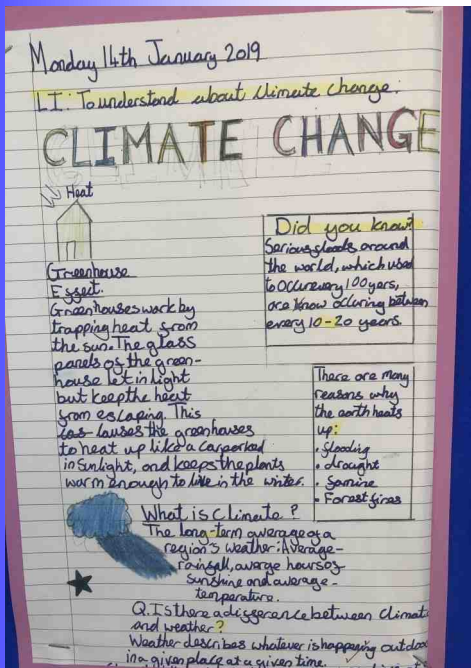 Monday 14th January 2019
LI: To understand about climate change.
CLIMATE CHANGE
Heat
Greenhouse
Effect.
Greenhouses work by
trapping heat from
the sun. The glass
panels of the green-
house let in light
but keep the heat
from escaping. This
causes the greenhouses
to heat up like a car parked
in sunlight, and keeps the plants
warm enough to live in the winter.
Did you know?
Serious floods around
the world, which used
to occur every 100 years,
are know occuring between
every 10-20 years.
There are many
reasons why
the earth heats
up:
• flooding
• drought
• famine
• Forest fires
What is Climate?
The long-term average of a
region's weather: Average-
rainfall, average hours of
sunshine and average-
temperature.
Q. Is there a difference between Climate
and weather?
Weather describes whatever is happening outdoo
in a given place at a given time.